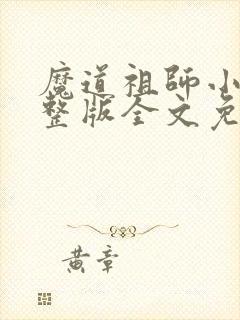 魔道祖師小
整版全文免
黄章